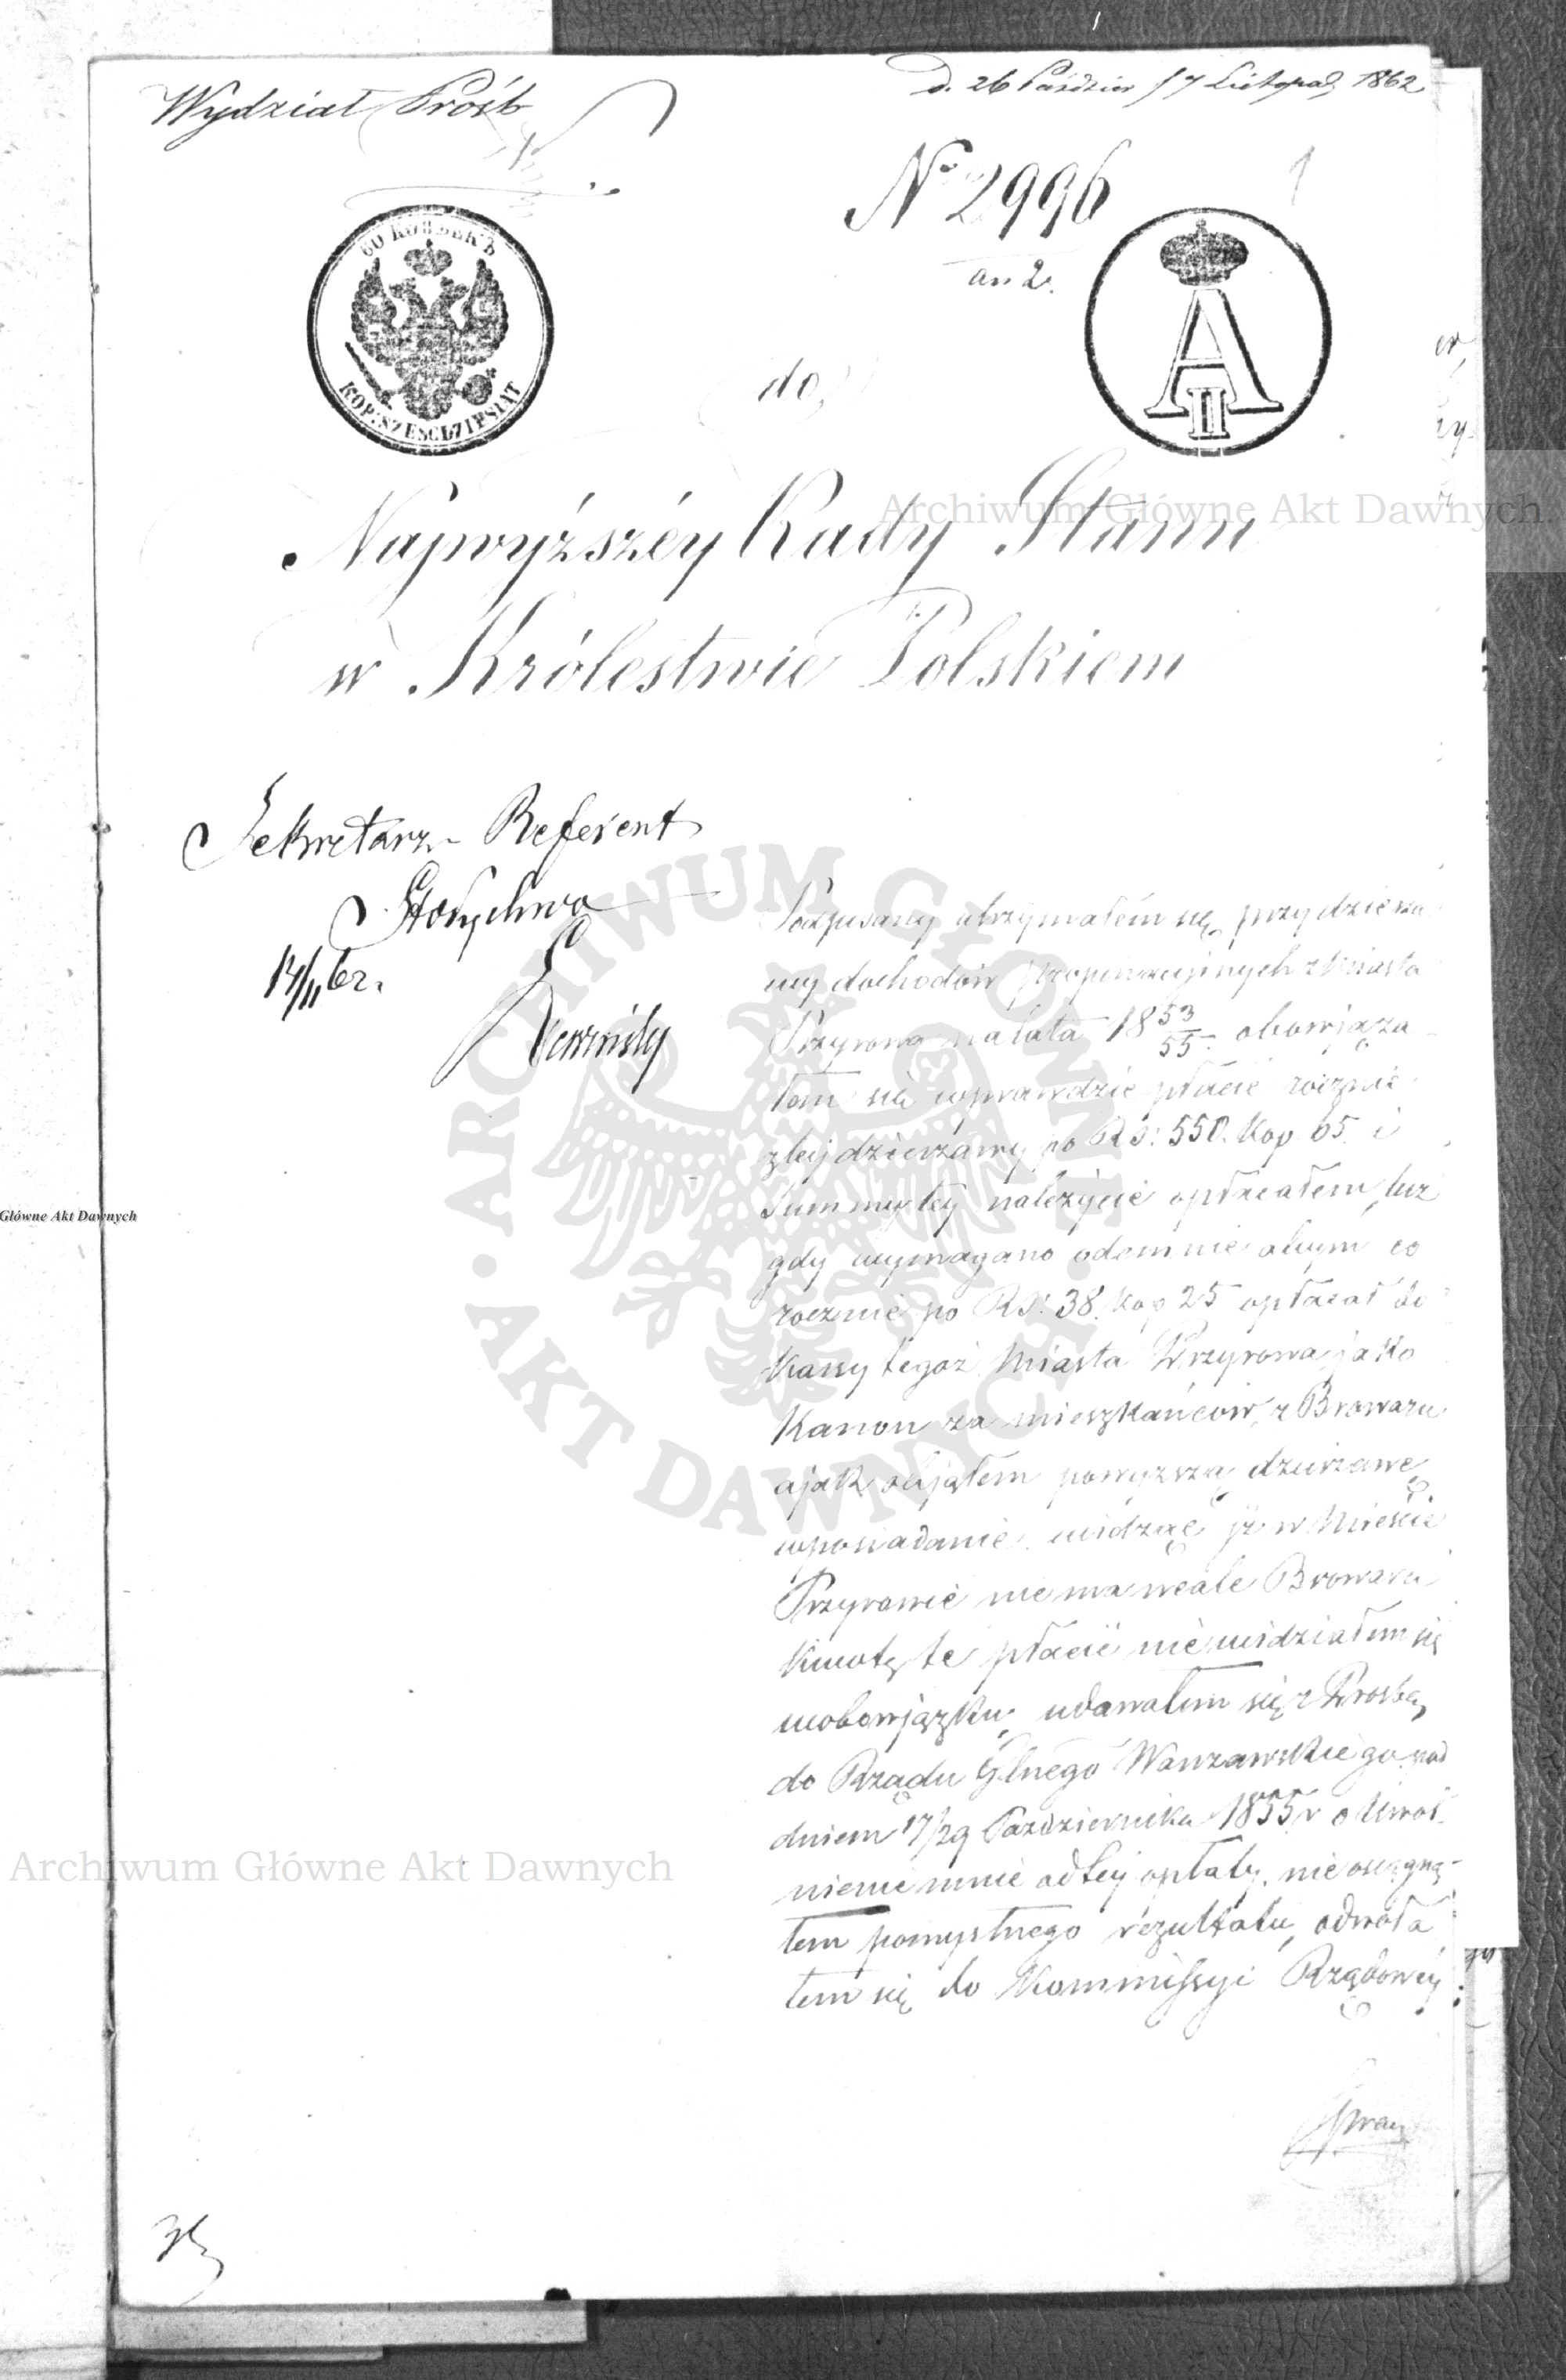 Wydział Próśb
D. 26 Paździer / 7 Listopad 1862
№ 2996
an 2.
1
60 КОПѢЕКЪ
KOP: SZESCDZIESIAT
A II
do
Najwyższéy Rady Stanu
w Królestwie Polskiem
Sekretarz Referent
14/11 62.
Podpisany utrzymałem się przy dzierża
wy dochodów propinacyjnych z Miasta
Przyrowa na lata 18 53/55. obowiąza
łem się wprawdzie płacić rocznie
z tey dzierżawy po Rs: 550. Kop 65. i
Summy tey należycie opłacałem, lecz
gdy wymagano odemnie abym co
rocznie po Rs: 38. Kop 25 opłacał do
Kassy tegoż Miasta Przyrowa, jako
Kanon za mieszkańców, z Browaru
a jak objąłem powyzszą dzierżawę
w posiadanie widząc iż w Mieście
Przyrowie nie ma wcale Browaru
Kwotę te płacić nie widziałem się
w obowiązku, udawałem się z Prosbą
do Rządu Glnego Warszawskiego pod
dniem 17/29 Października 1855 r o Uwol
nienie mnie od tey opłaty, nie osiągną-
łem pomyslnego rezultatu, odwoła
łem się do Kommissyi Rządowey
ARCHIWUM GŁÓWNE AKT DAWNYCH
Archiwum Główne Akt Dawnych
Główne Akt Dawnych
Archiwum Główne Akt Dawnych